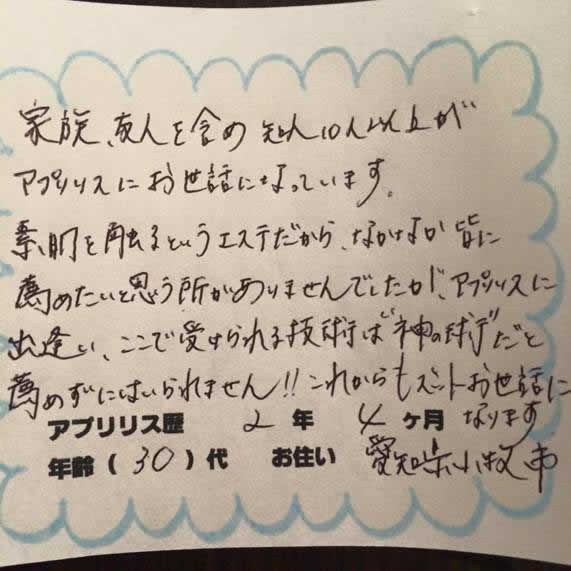 家族、友人を含め知人10人以上が
アプリリスにお世話になっています。
素肌を触るというエステだから、なかなか皆に
薦めたいと思う所がありませんでしたが、アプリリスに
出逢い、ここで受けられる技術は“神の技術”だと
薦めずにはいられません!!これからもズットお世話に
なります
アプリリス歴 2年 4ヶ月
年齢(30)代 お住い 愛知県小牧市